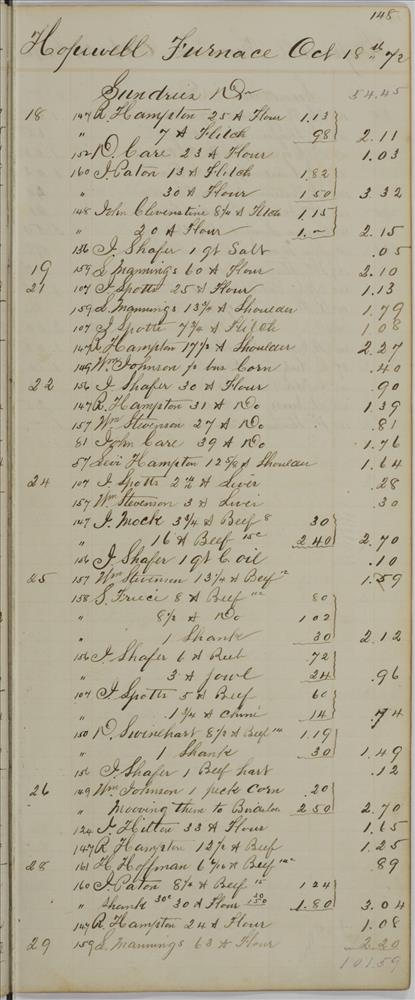 148
Hopewell Furnace Oct 18th 72
Sundries Dr 54.45
18 147 R. Hampton 25 # Flour 1.13
" 7 # Flitch 98 2.11
152 D. Care 23 # Flour 1.03
160 J. Paton 13 # Flitch 1.82
" 30 # Flour 1 50 3.32
148 John Clevenstine 8 1/4 # Flitch 1.15
" 20 # Flour 1.– 2.15
156 J. Shafer 1 qt Salt .05
19 159 L. Mannings 60 # Flour 2.10
21 107 J. Spotts 25 # Flour 1.13
159 L. Mannings 13 3/4 # Shoulder 1.79
107 J. Spotts 7 3/4 # Flitch 1 08
147 R. Hampton 17 1/2 # Shoulder 2.27
149 Wm Johnson 1/2 bus Corn .40
22 156 J. Shafer 30 # Flour .90
147 R. Hampton 31 # Do 1.39
157 Wm Stevenson 27 # Do .81
81 John Care 39 # Do 1.76
57 Levi Hampton 12 5/8 # Shoulder 1.64
24 107 J. Spotts # Liver .28
157 Wm Stevenson 3 # Liver .30
147 J. Mock 3 3/4 # Beef 8 30
" 16 # Beef 15c 2 40 2.70
156 J. Shafer 1 qt C. oil .10
25 157 Wm Stevenson 13 1/4 # Beef 12 1.59
158 S. 8 # Beef 80
" 8 1/2 # Do 1 02
" 1 Shank 30 2.12
156 J. Shafer 6 # Beef .72
" 3 # Jowl 24 .96
107 J. Spotts 5 # Beef 60
" 1 3/4 # chine 14 74
150 D. Swinehart 8 1/2 # Beef 14 1.19
" 1 Shank 30 1.49
156 J. Shafer 1 Beef hart .12
26 149 Wm Johnson 1 peck Corn .20
" Mooving them to 2 50 2.70
124 J. Hilton 33 # Flour 1.65
147 R. Hampton 12 1/2 # Beef 1.25
28 161 H. Hoffman # Beef 89
160 J. Paton 8 1/4 # Beef 15 1 24
" Shank 30c 30 # Flour 30 150 1.80 3.04
147 R. Hampton 24 # Flour 1.08
29 159 L. Mannings 63 # Flour 2.20
101.59